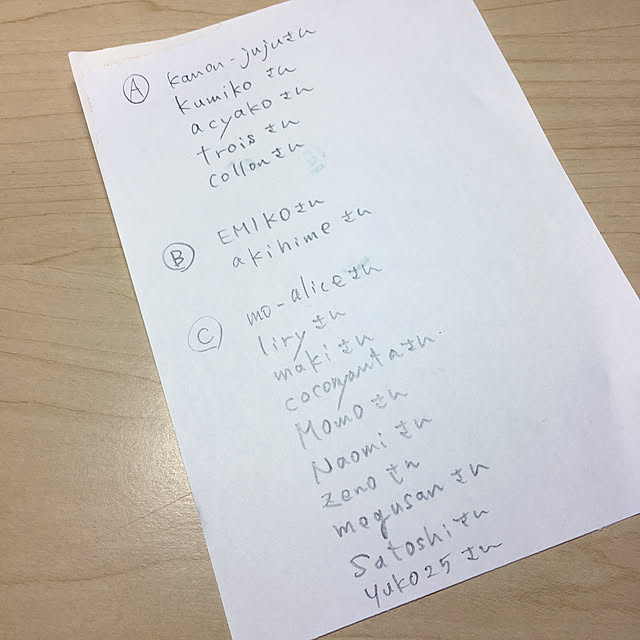 Ⓐ kanon-jujuさん
kumiko さん
acyako さん
trois さん
collonさん
Ⓑ EMIKOさん
akihime さん
Ⓒ mo-aliceさん
liry さん
maki さん
cocoyantaさん
Momo さん
Naomi さん
zeno さん
megusan さん
Satoshi さん
YUKO25 さん